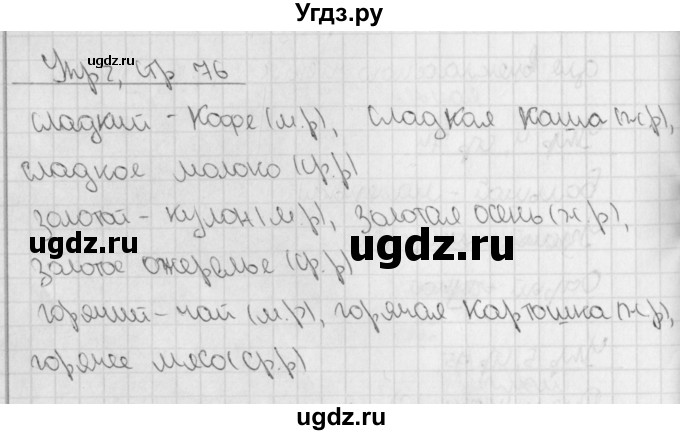 Угдз.ру
Упр 2, стр 76
сладкий - кофе (м.р), сладкая каша (ж.р),
сладкое молоко (ср.р)
золотой - кулон (м.р), золотая осень (ж.р),
ugdz.ru
ugdz.ru
золотое ожерелье (ср.р)
горячий - чай (м.р), горячая картошка (ж.р),
горячее мясо (ср.р)
ugdz.ru